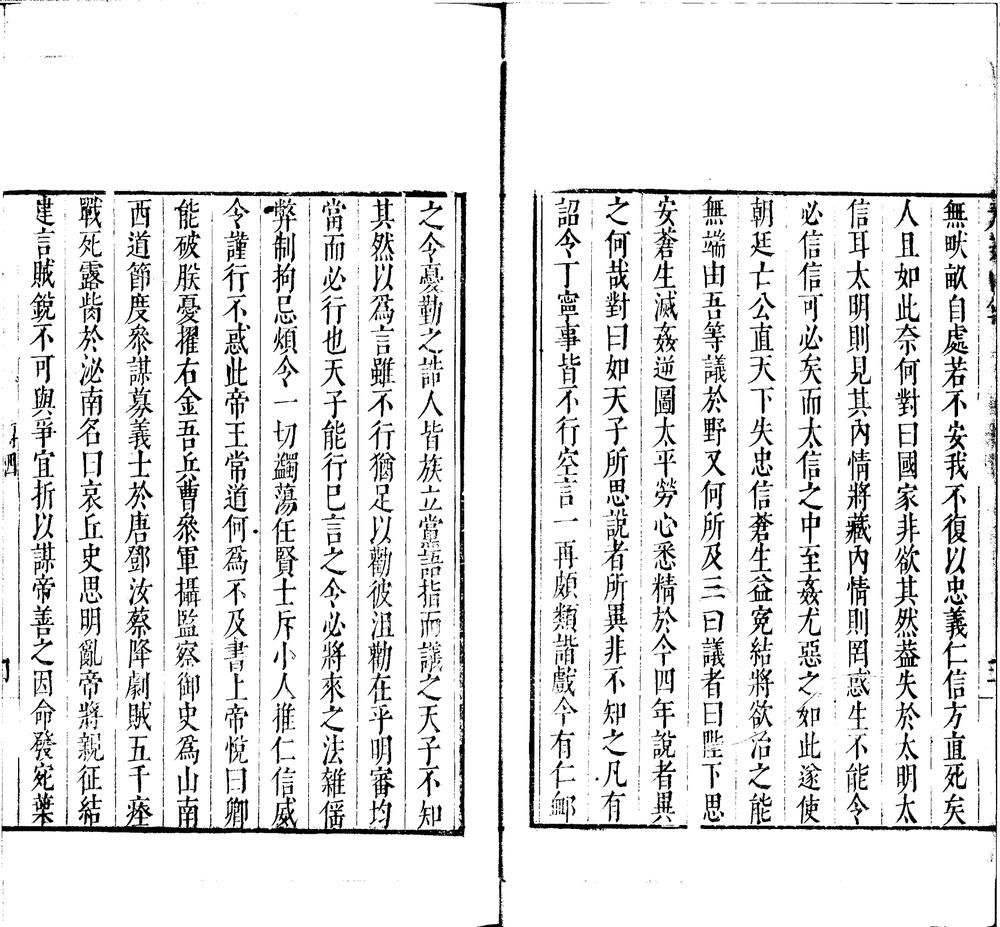 無畎畝自處若不安我不復以忠義仁信方直死矣
人且如此奈何對曰國家非欲其然葢失於太明太
信耳太明則見其內情將藏內情則罔惑生不能令
必信信可必矣而太信之中至姦尤惡之如此遂使
朝廷亡公直天下失忠信蒼生益寃結將欲治之能
無端由吾等議於野又何所及三曰議者曰陛下思
安蒼生滅姦逆圖太平勞心悉精於今四年說者異
之何哉對曰如天子所思說者所異非不知之凡有
詔令丁寧事皆不行空言一再頗類諧戲今有仁䘏
之令憂勤之誥人皆族立黨語指而議之天子不知
其然以爲言雖不行猶足以勸彼沮勸在乎明審均
當而必行也天子能行巳言之令必將來之法雜徭
弊制拘忌煩令一切蠲蕩任賢士斥小人推仁信威
令謹行不惑此帝王常道何爲不及書上帝悅曰卿
能破朕憂擢右金吾兵曹參軍攝監察御史爲山南
西道節度參謀募義士於唐鄧汝蔡降劇賊五千瘞
戰死露胔於泌南名曰哀丘史思明亂帝將親征結
建言賊銳不可與爭宜折以謀帝善之因命發宛葉